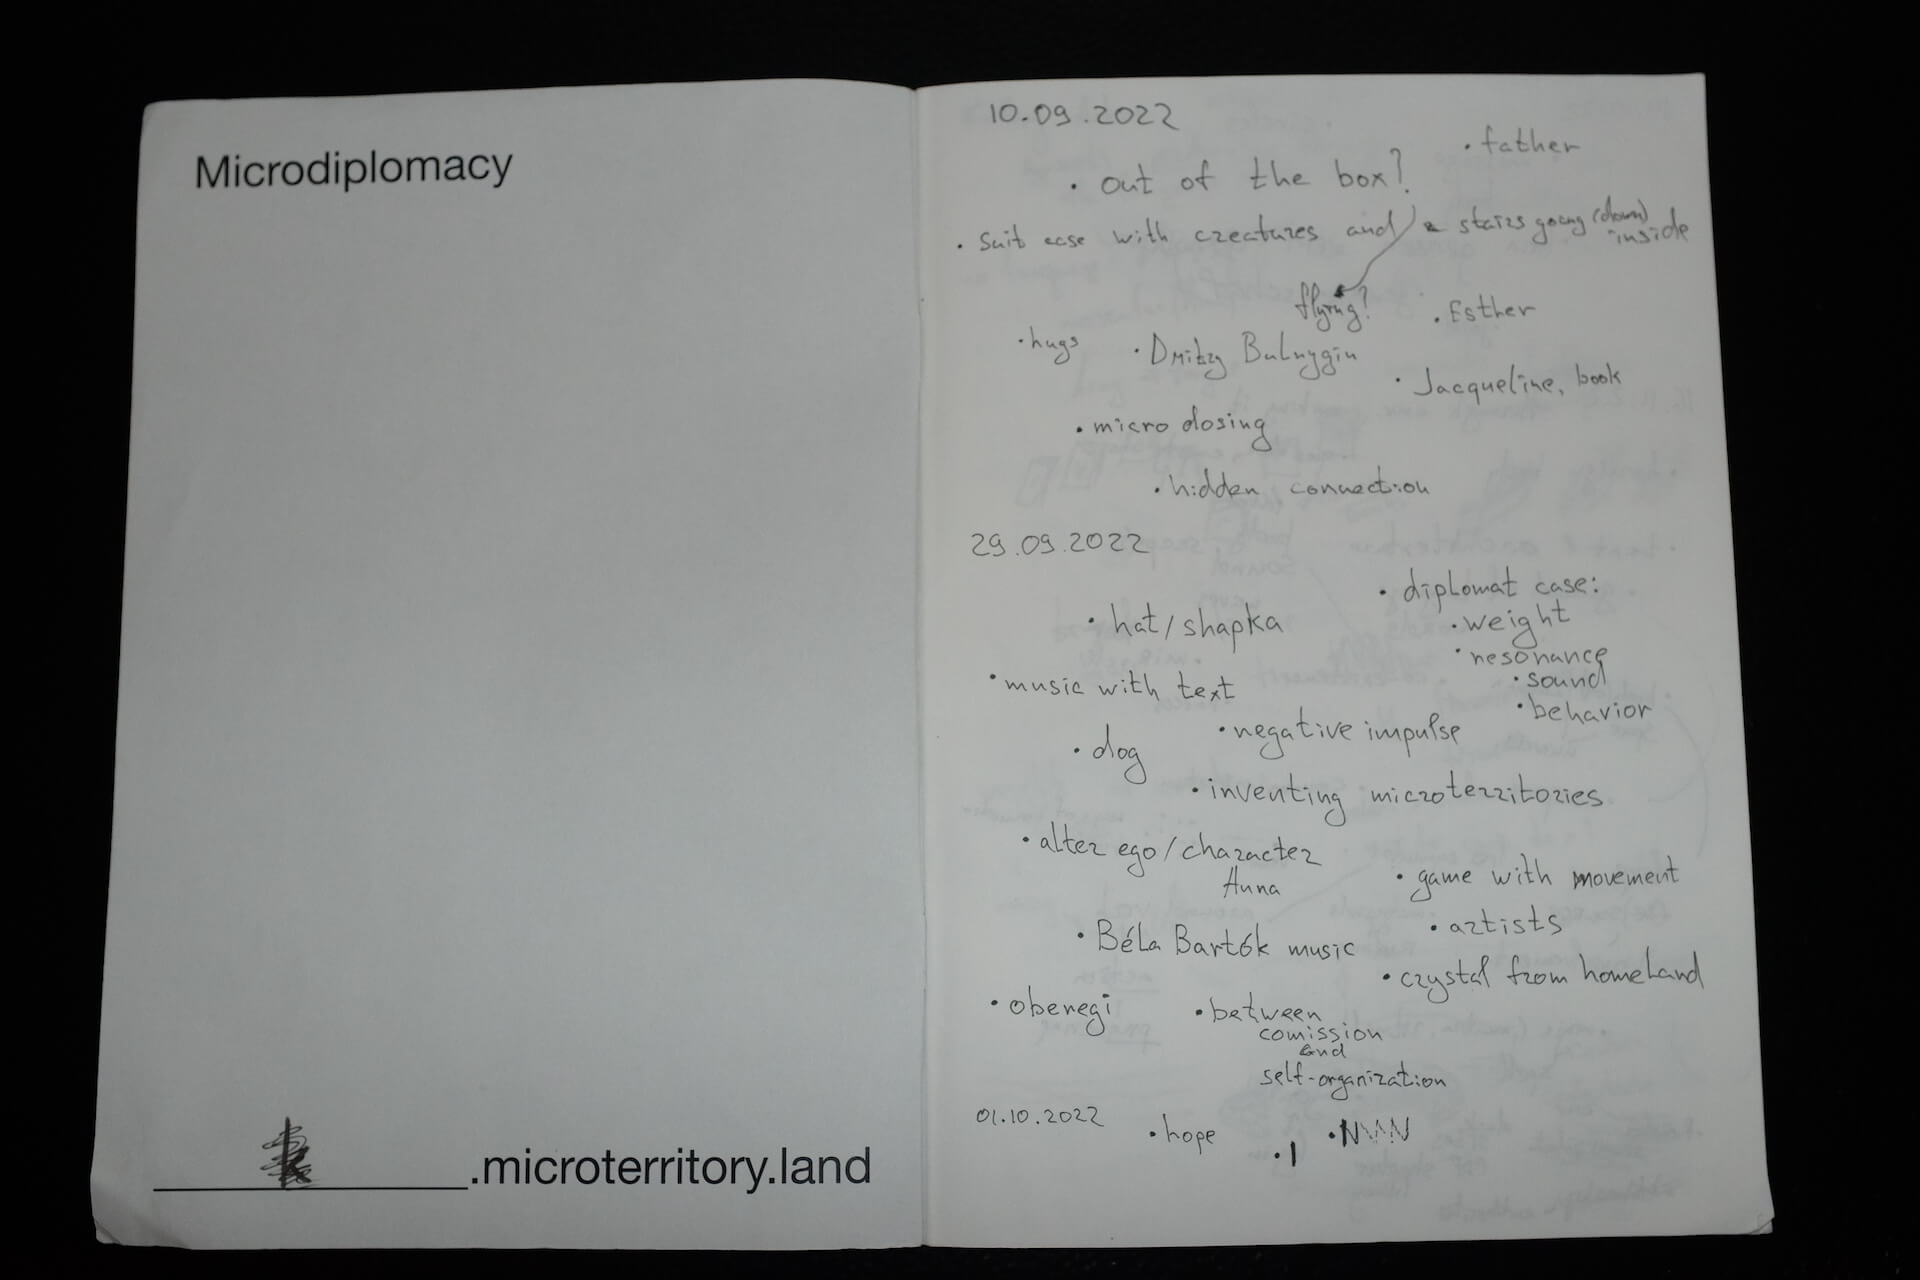 Microdiplomacy
.microterritory.land
10.09.2022
• father
• out of the box?
• suit case with creatures and a stairs going (down) inside
flying?
• Esther
• hugs
• Dmitry Bulnygin
• Jacqueline, book
• micro dosing
• hidden connection
29.09.2022
• diplomat case:
• weight
• resonance
• sound
• behavior
• hat/shapka
• music with text
• negative impulse
• dog
• inventing microterritories
• alter ego/character
Anna
• game with movement
• artists
• Béla Bartók music
• crystal from homeland
• oberegi
• between
comission
and
self-organization
01.10.2022
• hope